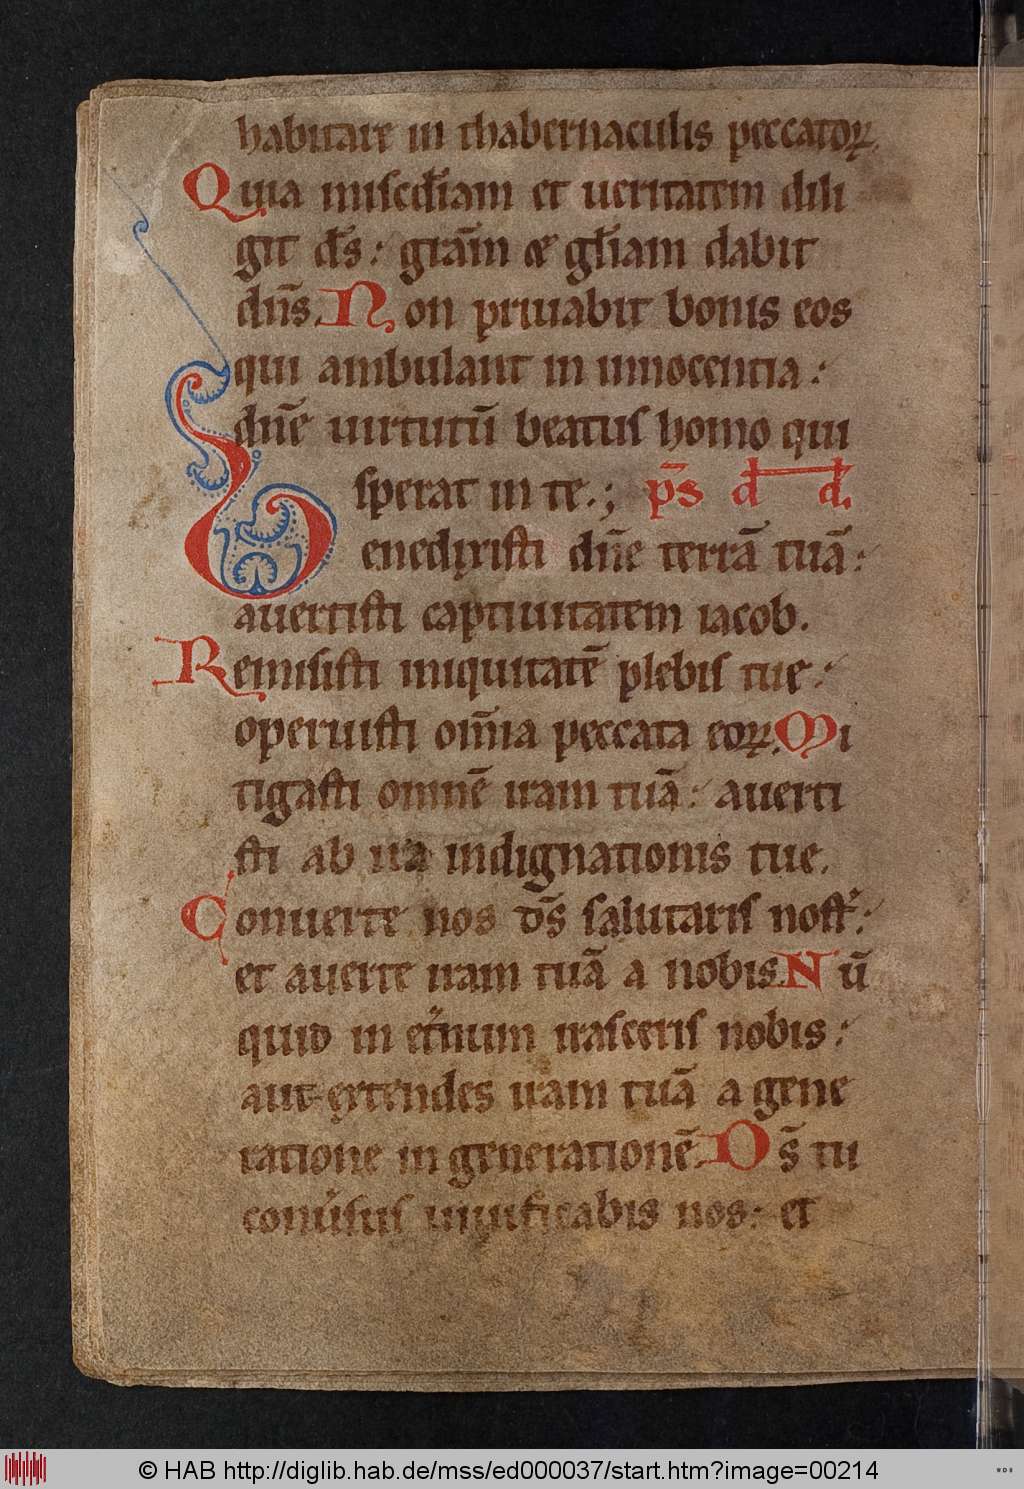 habitare in thabernaculis peccatoꝝ.
Quia miſcd̅iam et ueritatem dili
git d̅s: gra̅m et gl̅iam dabit
dn̅s. Non priuabit bonis eos
qui ambulant in innocentia:
dn̅e uirtutu̅ beatuſ homo qui
ſperat in te.; ps̅ d̅d̅.
Benedixiſti dn̅e terra̅ tua̅:
auertiſti captiuitatem iacob.
Remiſiſti iniquitate̅ plebiſ tue:
operuiſti om̅ia peccata eoꝝ. Mi
tigaſti omne̅ iram tua̅: auerti
ſti ab ira indignationis tue.
Conuerte nos d̅s ſalutariſ noſt̉:
et auerte iram tua̅ a nobis. Nu̅
quid in et̉num iraſceriſ nobis:
aut extendes iram tua̅ a gene
ratione in generatione̅. Ds̅ tu
conủſuſ uiuificabis nos: et
© HAB http://diglib.hab.de/mss/ed000037/start.htm?image=00214